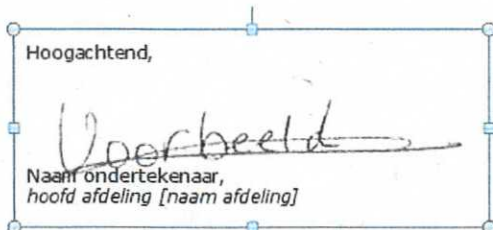 Hoogachtend,
Voorbeeld
Naam ondertekenaar,
hoofd afdeling [naam afdeling]